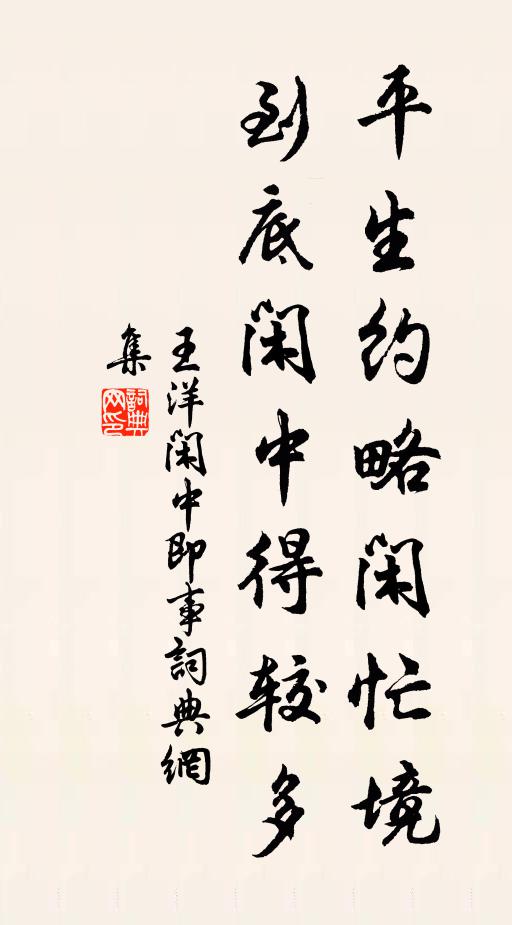 平生约略闲忙境
到底闲中得较多
王洋闲中即事詞典網
集
詞典
网印